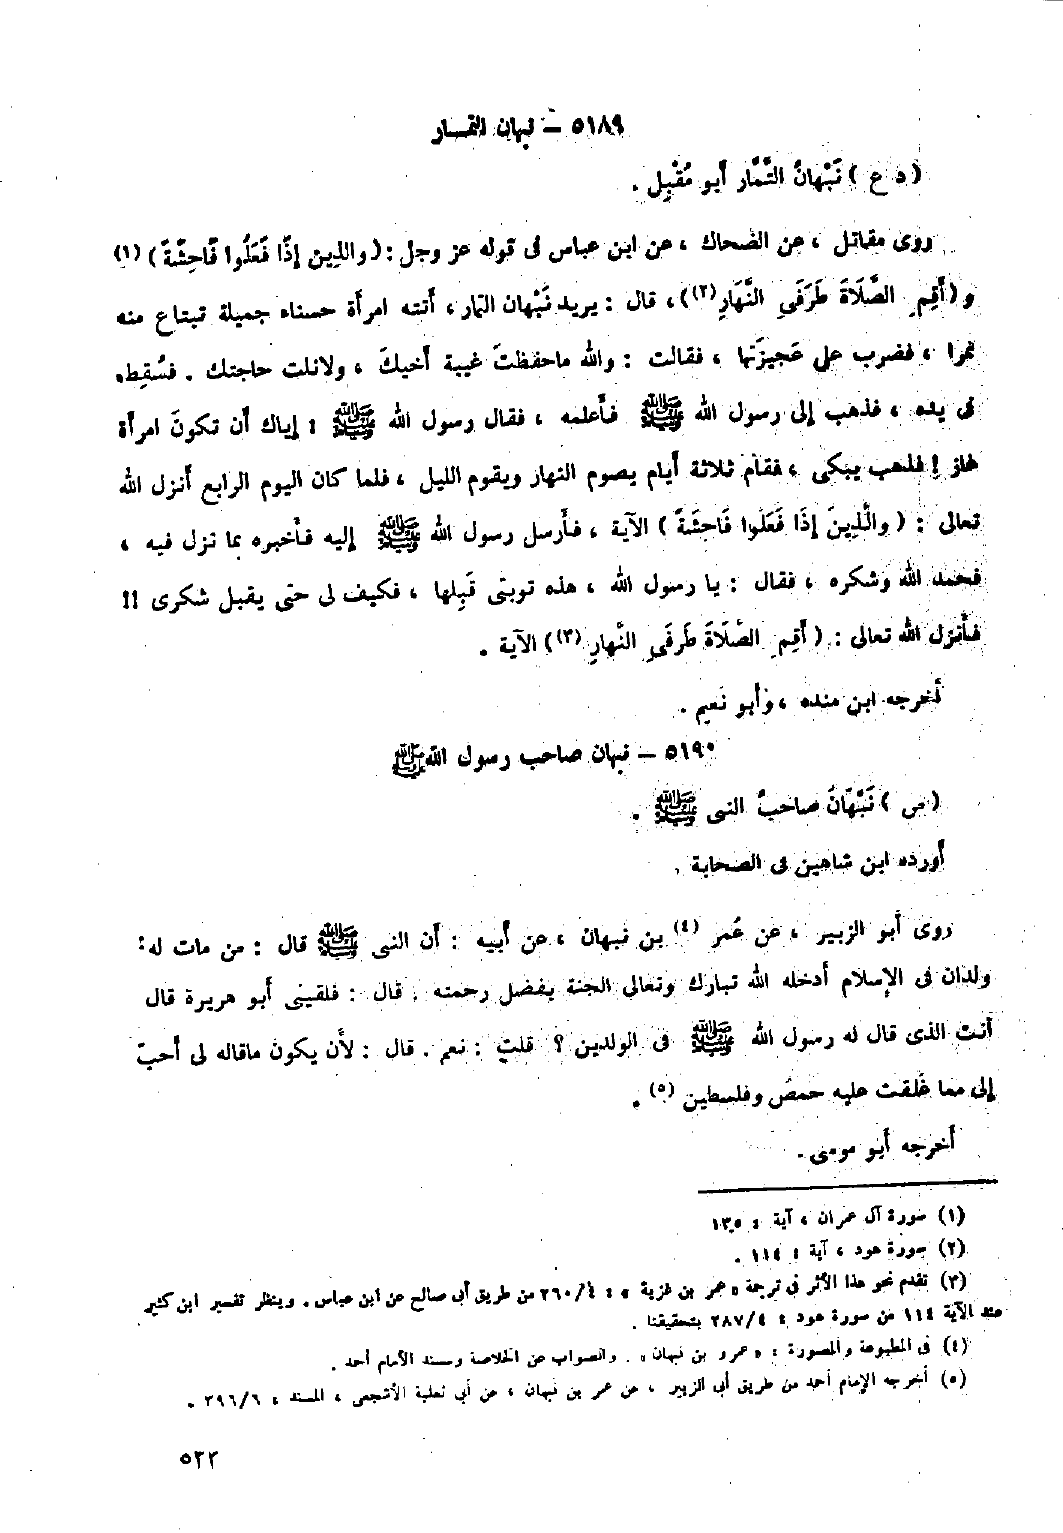 ٥١٨٩ – نبهان التمار
( د ع ) نَبْهانُ التَّمَّار أبو مُقْبِل .
روى مقاتل ، عن الضحاك ، عن ابن عباس فى قوله عز وجل : ( والذِين إذَا فَعَلُوا فَاحِشَةً ) (١)
و ( أَقِمِ الصَّلَاةَ طَرَفَىِ النَّهَارِ (٢) ) ، قال : يريد نَبْهان التمار ، أتته امرأة حسناء جميلة تبتاع منه
تمرا ، فضرب على عَجِيزَتها ، فقالت : والله ماحفظتَ غيبة أخيكَ ، ولانلت حاجتك . فسُقِط
فى يده ، فذهب إلى رسول الله ﷺ فأعلمه ، فقال رسول الله ﷺ : إياك أن تكونَ امرأة
غاز ! فذهب يبكى ، فقام ثلاثة أيام يصوم النهار ويقوم الليل ، فلما كان اليوم الرابع أنزل الله
تعالى : ( والَّذِينَ إذَا فَعَلُوا فَاحِشَةً ) الآية ، فأرسل رسول الله ﷺ إليه فأخبره بما نزل فيه ،
فحمد الله وشكره ، فقال : يا رسول الله ، هذه توبتى قَبِلها ، فكيف لى حتى يقبل شكرى !!
فأنزل الله تعالى : ( أَقِمِ الصَّلَاةَ طَرفَىِ النَّهارِ (٣) ) الآية .
أخرجه ابن منده ، وأبو نعيم .
٥١٩٠ – نبهان صاحب رسول الله ﷺ
( س ) نَبْهَانُ صاحبُ النبى ﷺ .
أورده ابن شاهين فى الصحابة .
روى أبو الزبير ، عن عُمر (٤) بن نبهان ، عن أبيه : أن النبى ﷺ قال : من مات له
ولدان فى الإسلام أدخله الله تبارك وتعالى الجنة بفضل رحمته . قال : فلقينى أبو هريرة قال
أنت الذى قال له رسول الله ﷺ فى الولدين ؟ قلت : نعم . قال : لأن يكون ماقاله لى أحبّ
إلى مما غُلقت عليه حمصُ وفلسطين (٥) .
أخرجه أبو موسى .
(١) سورة آل عمران ، آية : ١٣٥
(٢) سورة هود ، آية : ١١٤ .
(٣) تقدم نحو هذا الأثر فى ترجمة « عمر بن غزية » : ٤/٢٦٠ من طريق أبى صالح عن ابن عباس . وينظر تفسير ابن كثير
عند الآية ١١٤ من سورة هود : ٤/٢٨٧ بتحقيقنا .
(٤) فى المطبوعة والمصورة : « عمرو بن نبهان » . والصواب عن الخلاصة ومسند الإمام أحمد .
(٥) أخرجه الإمام أحمد من طريق أبى الزبير ، عن عمر بن نبهان ، عن أبى ثعلبة الأشجعى ، المسند : ٦/٣٩٦ .
٥٣٣